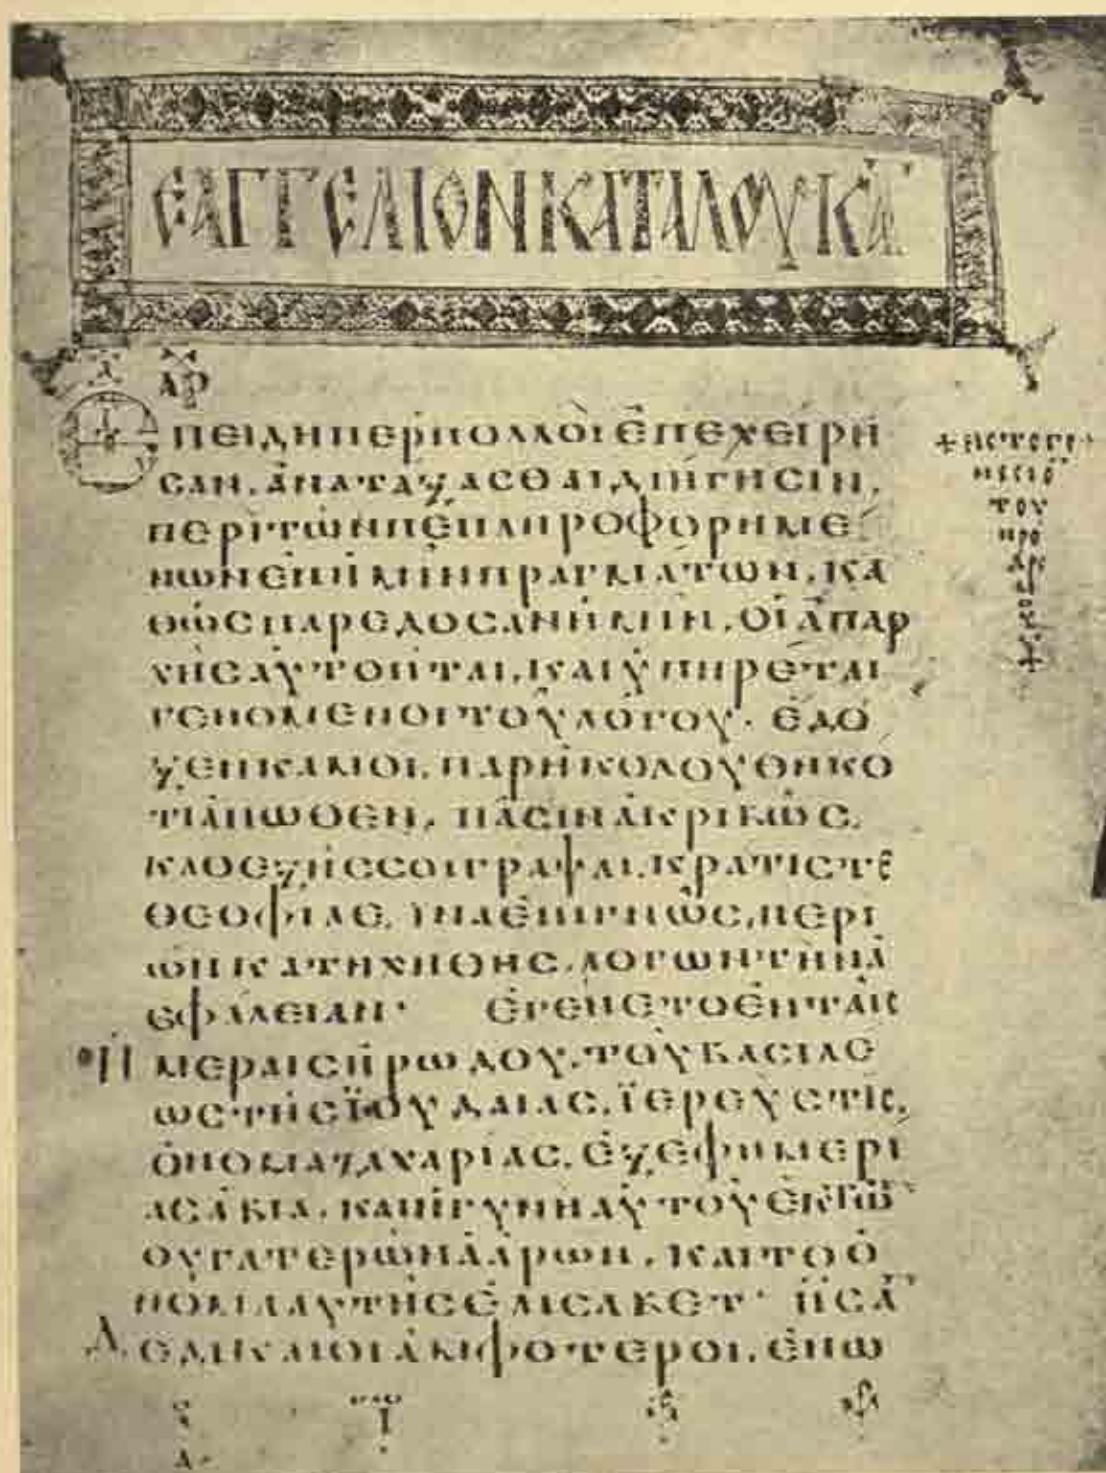 ΕΑΓΓΕΛΙΟΝΚΑΤΑΛΟΥΚΑ
ΑΡ
ΕΠΕΙΔΗΠΕΡΠΟΛΛΟΙΕΠΕΧΕΙΡΗ
ϹΑΝ. ΑΝΑΤΑΞΑϹΘΑΙΔΙΗΓΗϹΙΝ.
ΠΕΡΙΤΩΝΠΕΠΛΗΡΟΦΟΡΗΜΕ
ΝΩΝΕΝΗΜΙΝΠΡΑΓΜΑΤΩΝ. ΚΑ
ΘΩϹΠΑΡΕΔΟϹΑΝΗΜΙΝ. ΟΙΑΠΑΡ
ΧΗϹΑΥΤΟΠΤΑΙ. ΚΑΙΥΠΗΡΕΤΑΙ
ΓΕΝΟΜΕΝΟΙΤΟΥΛΟΓΟΥ· ΕΔΟ
ΞΕΝΚΑΜΟΙ. ΠΑΡΗΚΟΛΟΥΘΗΚΟ
ΤΙΑΝΩΘΕΝ. ΠΑϹΙΝΑΚΡΙΒΩϹ.
ΚΑΘΕΞΗϹϹΟΙΓΡΑΨΑΙ. ΚΡΑΤΙϹΤΕ
ΘΕΟΦΙΛΕ. ΙΝΑΕΠΙΓΝΩϹ. ΠΕΡΙ
ΩΝΚΑΤΗΧΗΘΗϹ. ΛΟΓΩΝΤΗΝΑ
ϹΦΑΛΕΙΑΝ· ΕΓΕΝΕΤΟΕΝΤΑΙϹ
ΗΜΕΡΑΙϹΗΡΩΔΟΥ. ΤΟΥΒΑϹΙΛΕ
ΩϹΤΗϹΪΟΥΔΑΙΑϹ. ΪΕΡΕΥϹΤΙϹ.
ΟΝΟΜΑΤΙΖΑΧΑΡΙΑϹ. ΕΞΕΦΗΜΕΡΙ
ΑϹΑΒΙΑ. ΚΑΙΗΓΥΝΗΑΥΤΟΥΕΚΤΩΝ
ΘΥΓΑΤΕΡΩΝΑΑΡΩΝ. ΚΑΙΤΟΟ
ΝΟΜΑΑΥΤΗϹΕΛΙϹΑΒΕΤ· ΗϹΑΝ
Δ. ΕΔΙΚΑΙΟΙΑΜΦΟΤΕΡΟΙ. ΕΝΩ
ΤΟΥ